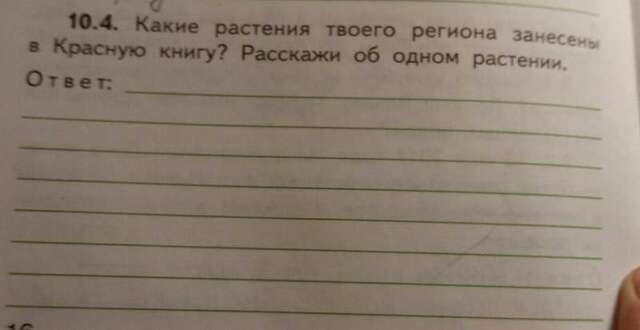 10.4. Какие растения твоего региона занесены
в Красную книгу? Расскажи об одном растении.
Ответ: